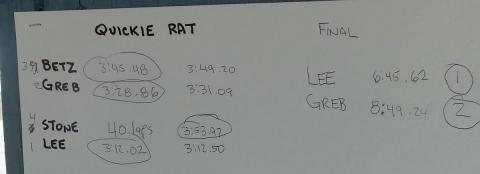 QUICKIE RAT
BETZ 3:45.48 3:49.20
2 GREB 3:28.86 3:31.09
4 STONE 40 laps
1 LEE 3:12.02 3:12.50
FINAL
LEE 6:45.62 1
GREB 8:49.24 2